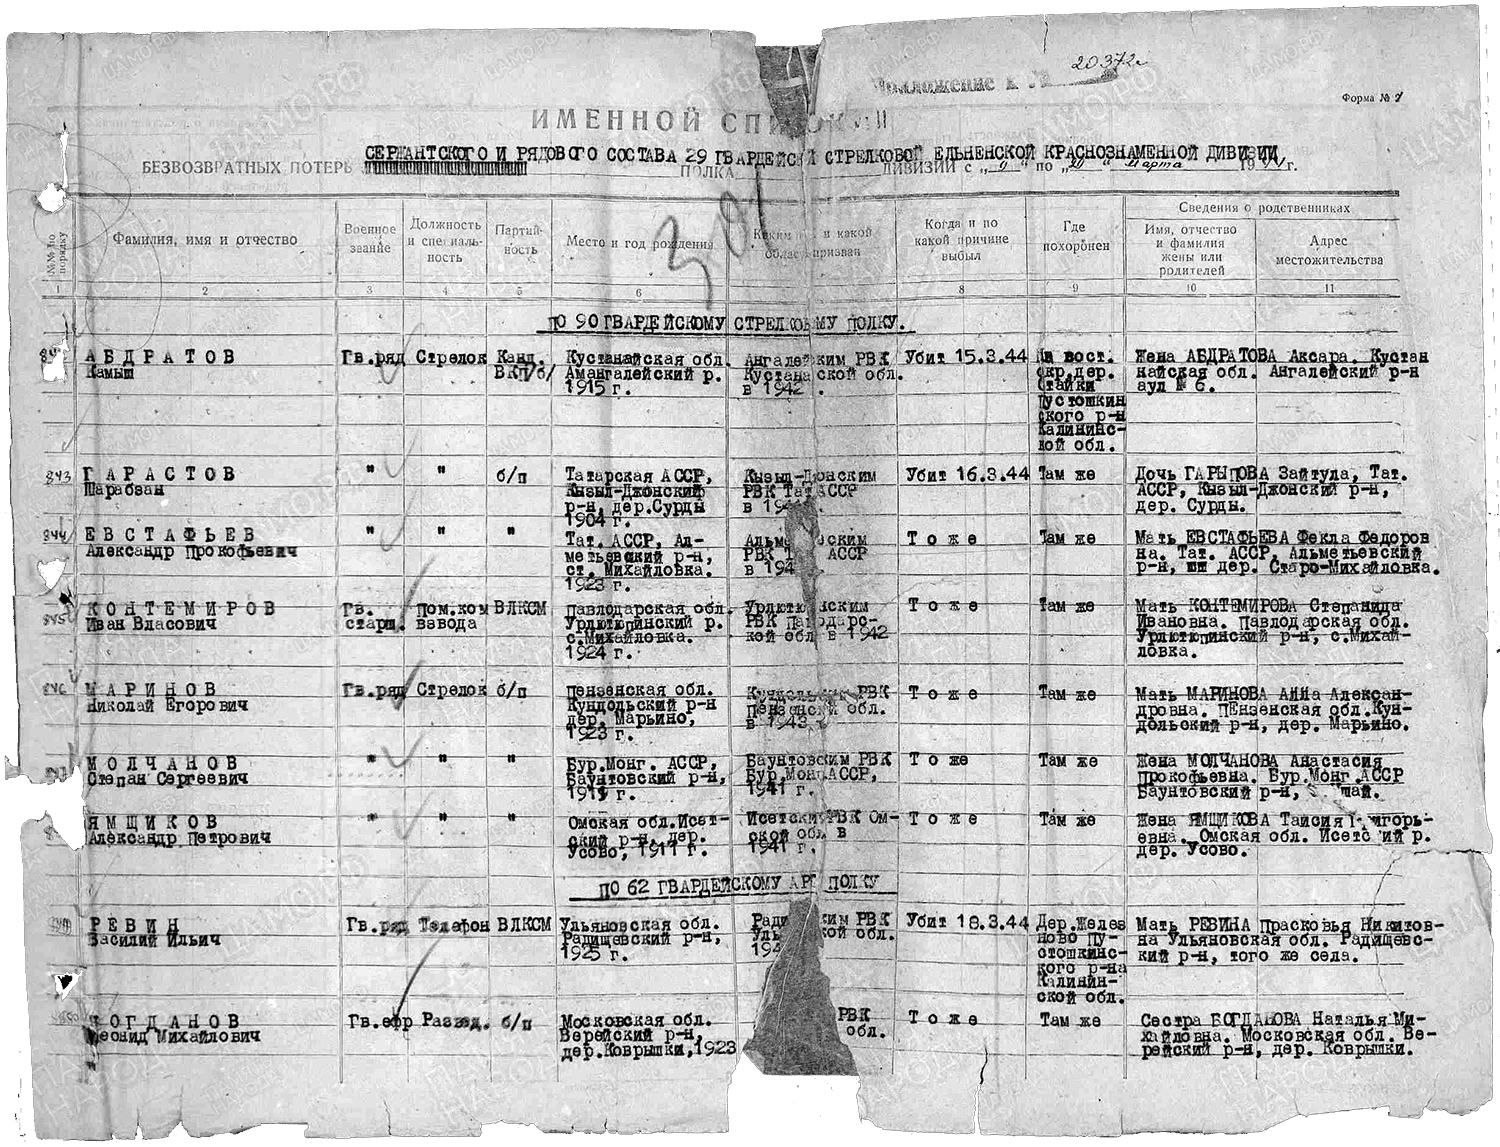 20372с
Приложение к №
Форма № 2
ИМЕННОЙ СПИСОК № 11
СЕРЖАНТСКОГО И РЯДОВОГО СОСТАВА 29 ГВАРДЕЙСКОЙ СТРЕЛКОВОЙ ЕЛЬНЕНСКОЙ КРАСНОЗНАМЕННОЙ ДИВИЗИИ
БЕЗВОЗВРАТНЫХ ПОТЕРЬ ПОЛКА ДИВИЗИИ с „9" по „ " марта 1944 г.
№№ по порядку
Фамилия, имя и отчество
Военное звание
Должность и специальность
Партийность
Место и год рождения
Каким и какой области призван
Когда и по какой причине выбыл
Где похоронен
Сведения о родственниках
Имя, отчество и фамилия жены или родителей
Адрес местожительства
1 2 3 4 5 6 8 9 10 11
ПО 90 ГВАРДЕЙСКОМУ СТРЕЛКОВОМУ ПОЛКУ.
АБДРАТОВ Гв.ряд Стрелок Канд. Кустанайская обл. Ангалейским РВК Убит 15.3.44 На вост. Жена АБДРАТОВА Аксара. Кустан
Камыш ВКП/б/ Амангалейский р. Кустанайской обл. окр.дер. найская обл. Ангалейский р-н
1915 г. в 1942 г. Стайки аул № 6.
Пустошкин
ского р-на
Калининс-
кой обл.
843 ГАРАСТОВ " " б/п Татарская АССР, Кызыл-Джонским Убит 16.3.44 Там же Дочь ГАРЫПОВА Зайтула, Тат.
Шарабзан Кызыл-Джонский РВК Тат АССР АССР, Кызыл-Джонский р-н,
р-н, дер.Сурды в 194 дер. Сурды.
1904 г.
844 ЕВСТАФЬЕВ " " " Тат. АССР, Ал- Альметьевским То же Там же Мать ЕВСТАФЬЕВА Фекла Федоров
Александр Прокофьевич метьевский р-н, РВК Тат АССР на. Тат. АССР, Альметьевский
ст. Михайловка. в 194 р-н, дер. Старо-Михайловка.
1923 г.
845 КОНТЕМИРОВ Гв. Пом.ком ВЛКСМ Павлодарская обл. Урлютюпинским То же Там же Мать КОНТЕМИРОВА Степанида
Иван Власович старш. взвода Урлютюпинский р. РВК Павлодарс- Ивановна. Павлодарская обл.
с.Михайловка. кой обл в 1942 Урлютюпинский р-н, с.Михай-
1924 г. ловка.
846 МАРИНОВ Гв.ряд Стрелок б/п Пензенская обл. РВК То же Там же Мать МАРИНОВА Анна Алексан-
Николай Егорович Кундольский р-н Пензенской обл. дровна. ПЕнзенская обл.Кун-
дер. Марьино, в 1943 г. дольский р-н, дер. Марьино.
1923 г.
847 МОЛЧАНОВ " " " Бур.Монг. АССР, Баунтовским РВК То же Там же Жена МОЛЧАНОВА Анастасия
Степан Сергеевич Баунтовский р-н, Бур.Монг АССР, Прокофьевна. Бур.Монг.АССР
1911 г. 1941 г. Баунтовский р-н,
ЯМЩИКОВ " " " Омская обл.Исет- Исетским РВК Ом- То же Там же Жена ЯМЩИКОВА Таисия Григорь-
Александр Петрович ский р-н, дер. ской обл в евна. Омская обл. Исетский р.
Усово, 1911 г. 1941 г. дер. Усово.
ПО 62 ГВАРДЕЙСКОМУ АРТ ПОЛКУ
РЕВИН Гв.ряд Телефон ВЛКСМ Ульяновская обл. Радищевским РВК Убит 18.3.44 Дер.Желез Мать РЕВИНА Прасковья Никитов-
Василий Ильич Радищевский р-н, Ульяновской обл. ново Пу- на Ульяновская обл. Радищевс-
1925 г. 194 стошкинс- кий р-н, того же села.
кого р-на
Калинин-
ской обл.
БОГДАНОВ Гв.ефр Развед. б/п Московская обл. РВК То же Там же Сестра БОГДАНОВА Наталья Ми-
Леонид Михайлович Верейский р-н, обл. хайловна. Московская обл. Ве-
дер.Коврышки,1923 рейский р-н, дер. Коврышки.